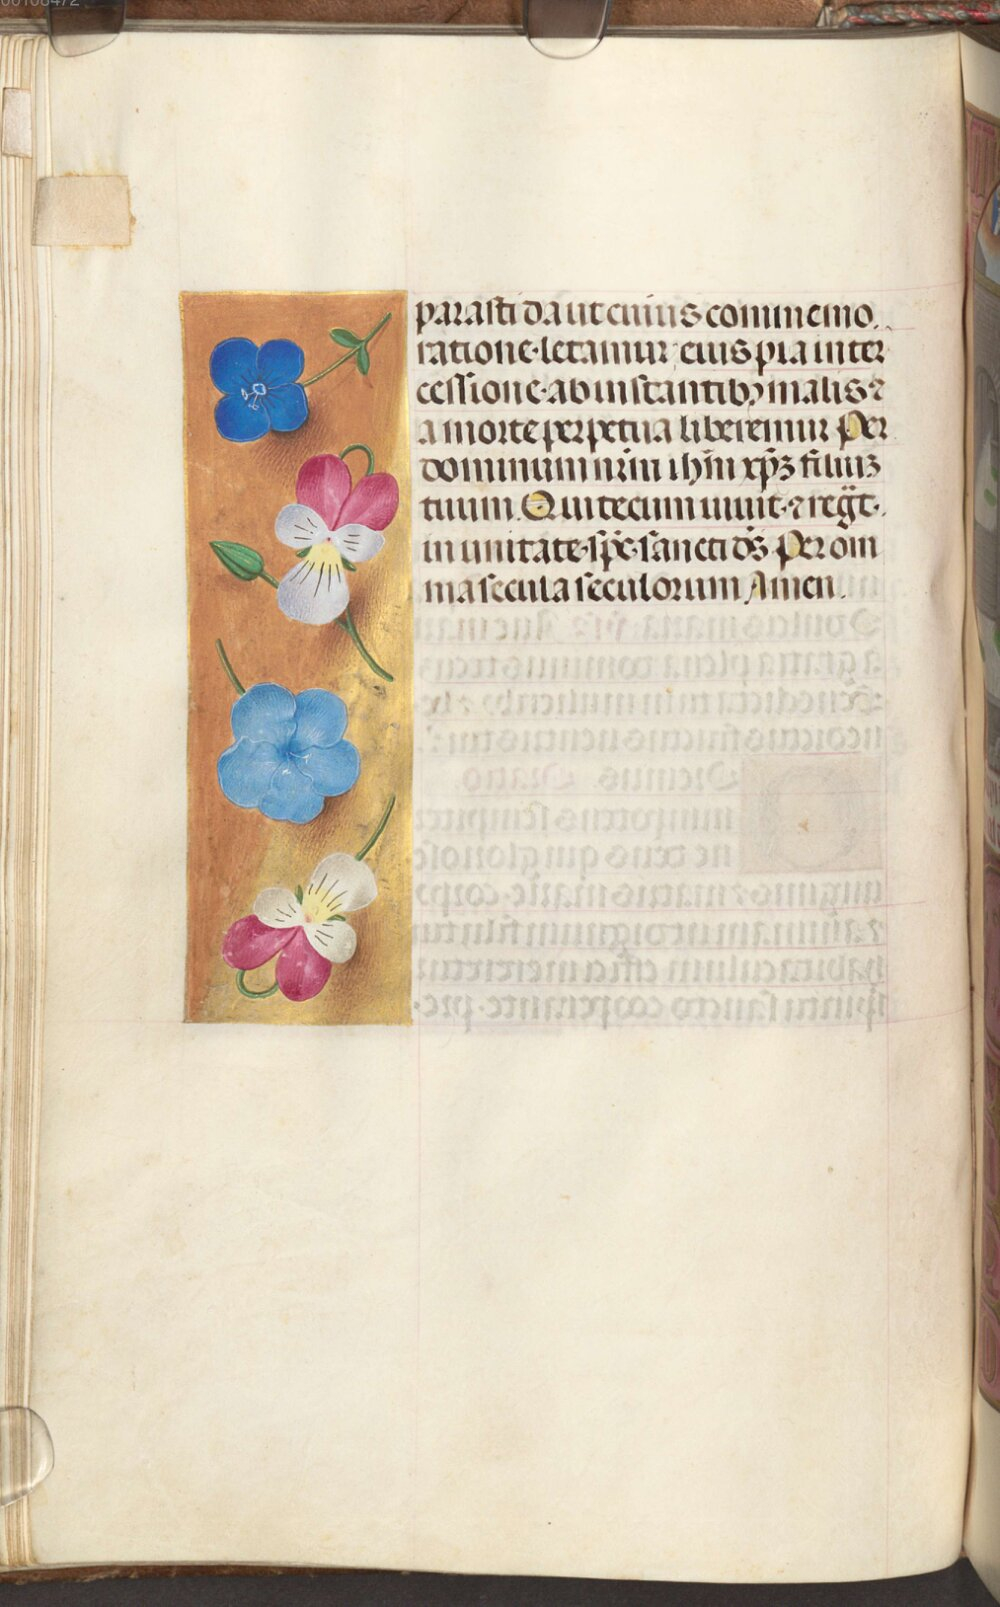 parasti da ut cuius commemo
ratione·letamur eius pia inter
cessione·ab instantibꝰ malis·⁊
a morte perpetua liberemur Per
dominum nr̄m ih̄m xp̄ꝫ filiuꝫ
tuum. Qui tecum uiuit·⁊ regt̄·
in unitate·sp̄c·sancti ds̄ Per om
nia secula seculorum Amen.